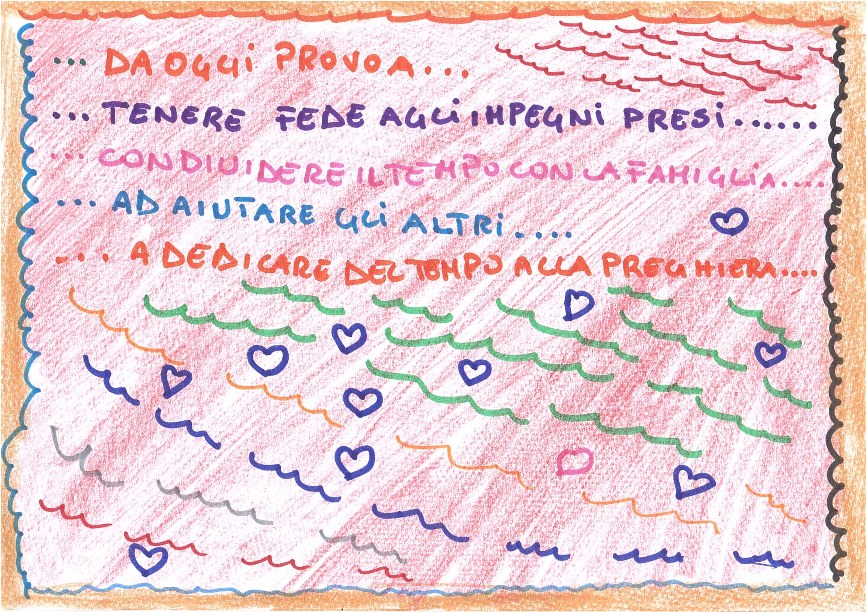 ... DA OGGI PROVO A...
... TENERE FEDE AGLI IMPEGNI PRESI......
... CONDIVIDERE IL TEMPO CON LA FAMIGLIA....
... AD AIUTARE GLI ALTRI....
... A DEDICARE DEL TEMPO ALLA PREGHIERA....